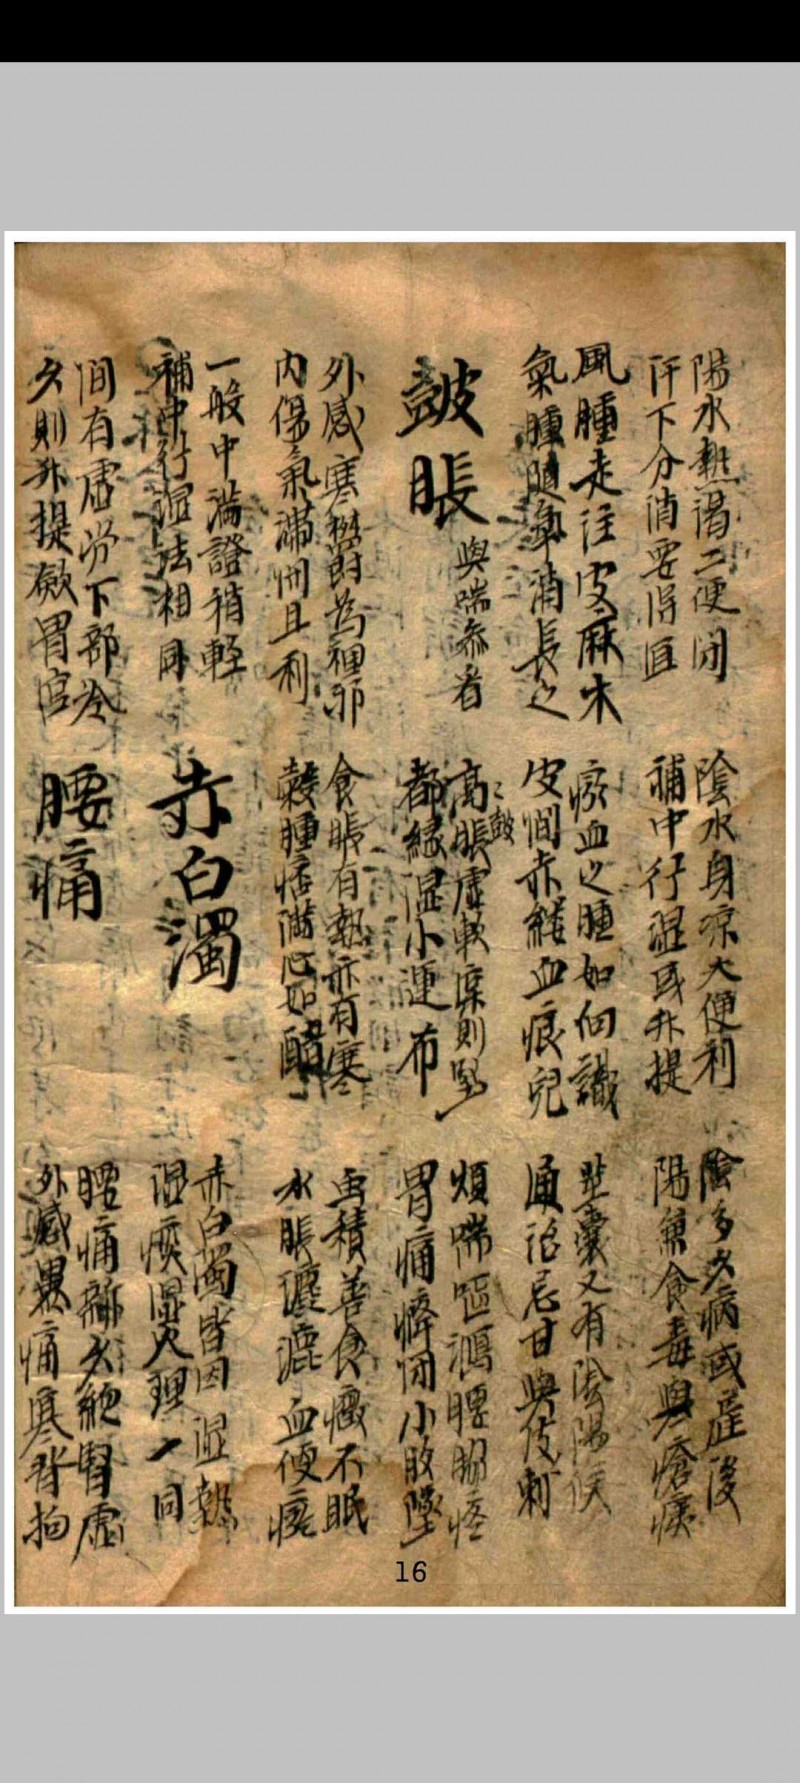 陽水熱渴二便闭
汗下分消要得宜
陰水身凉大便利
補中行湿或升提
陰多久病或産後
陽兼食毒與瘡痍
風腫走注皮麻木
氣腫隨氣消長之
瘀血之腫如何識
皮間赤縷血痕兒
囊又有陰陽候
通治忌甘與皮刺
鼓脹
與喘參看
高脹虛軟則堅
鼓
都緣湿小運布
煩喘嘔瀉腰胁疼
胃痛痞闭小股墜
外感寒鬱為裡邪
内傷氣滯闭且利
食脹有熱亦有寒
穀腫痞滿心如醋
虫積善食不眠
水脹瀝漉血便瘀
一般中滿證稍軽
補中行湿法相同
赤白濁
赤白濁皆因湿熱
湿痰湿火理一同
間有虛劳下部冷
久則升提斂胃宮
腰痛
腰痛新久總腎虛
外感暴痛寒背拘
16